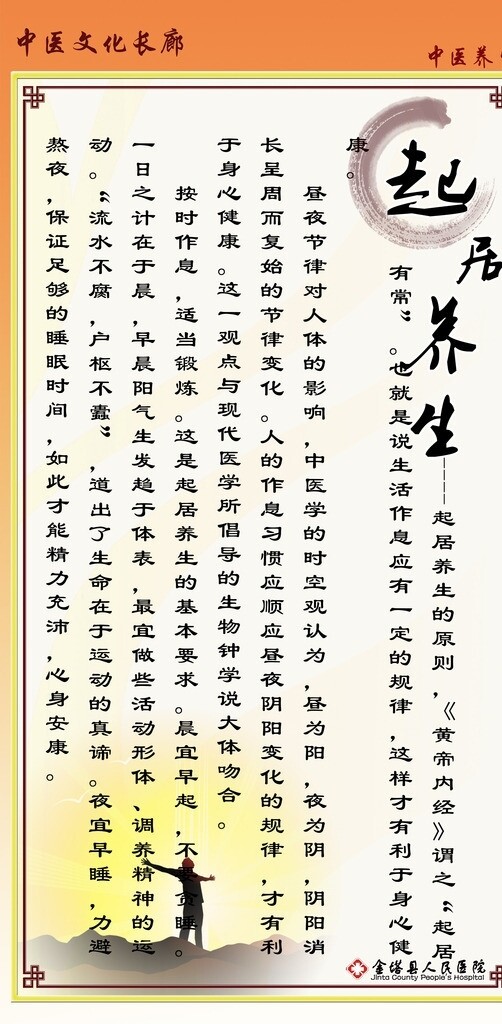 中医文化长廊
中医养
起居养生
----起居养生的原则，《黄帝内经》谓之“起居
有常”。也就是说生活作息应有一定的规律，这样才有利于身心健
康。
昼夜节律对人体的影响，中医学的时空观认为，昼为阳，夜为阴，阴阳消
长呈周而复始的节律变化。人的作息习惯应顺应昼夜阴阳变化的规律，才有利
于身心健康。这一观点与现代医学所倡导的生物钟学说大体吻合。
按时作息，适当锻炼。这是起居养生的基本要求。晨宜早起，不要贪睡。
一日之计在于晨，早晨阳气生发趋于体表，最宜做些活动形体、调养精神的运
动。“流水不腐，户枢不蠹”，道出了生命在于运动的真谛。夜宜早睡，力避
熬夜，保证足够的睡眠时间，如此才能精力充沛，心身安康。
金塔县人民医院
Jinta County People's Hospital